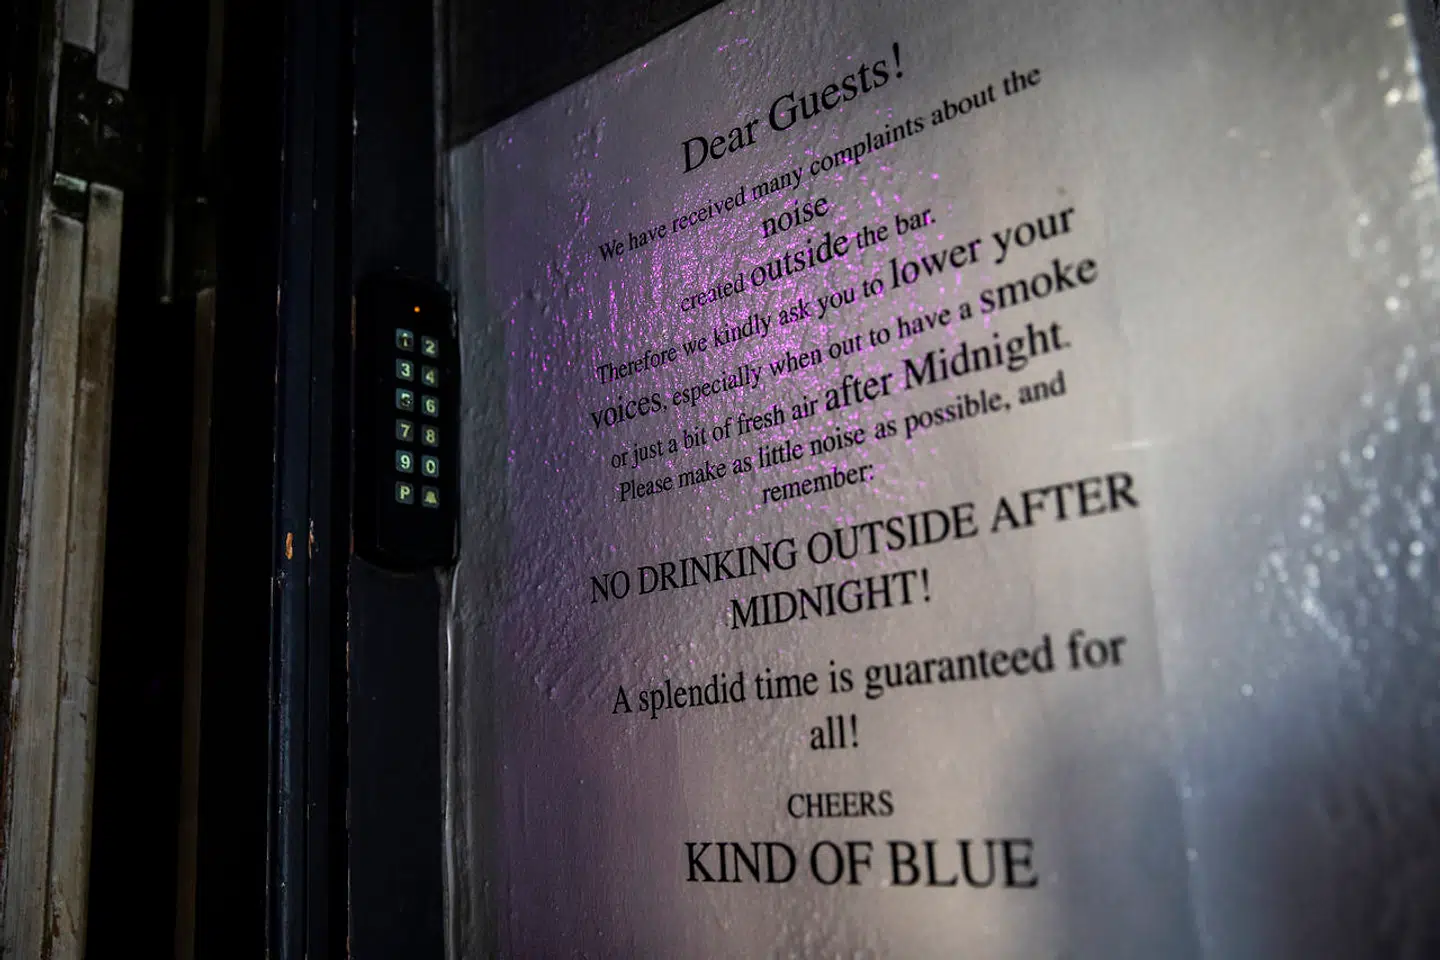 Dear Guests!
We have received many complaints about the
noise
created outside the bar.
Therefore we kindly ask you to lower your
voices, especially when out to have a smoke
or just a bit of fresh air after Midnight.
Please make as little noise as possible, and
remember:
NO DRINKING OUTSIDE AFTER
MIDNIGHT!
A splendid time is guaranteed for
all!
CHEERS
KIND OF BLUE
1 2
3 4
5 6
7 8
9 0
P